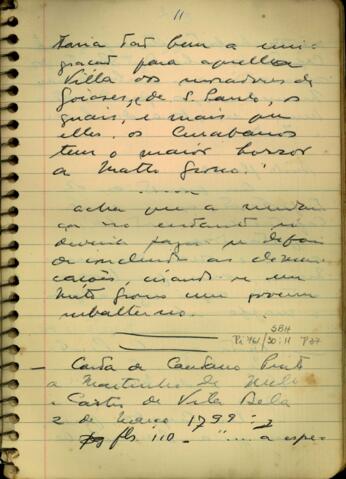 11
taria tão bem a emi-
gração para aquella
Villa dos moradores de
Goiases, e de S. Paulo, os
quais, e mais que
elles, os Cuiabanos
tem o maior horror
a Matto Grosso."
.......
acha que a mudan
ça no entanto só
deveria fazer-se depois
de concluidas as demar-
cações, creando-se em
Mato Grosso um governo
subalterno.
SBH
Pi 46/ 30:11 P27
— Carta de Caetano Pinto
a Martinho de Mello
e Castro de Vila Bela
2 de março 1799:
fls 110 — "... a espe